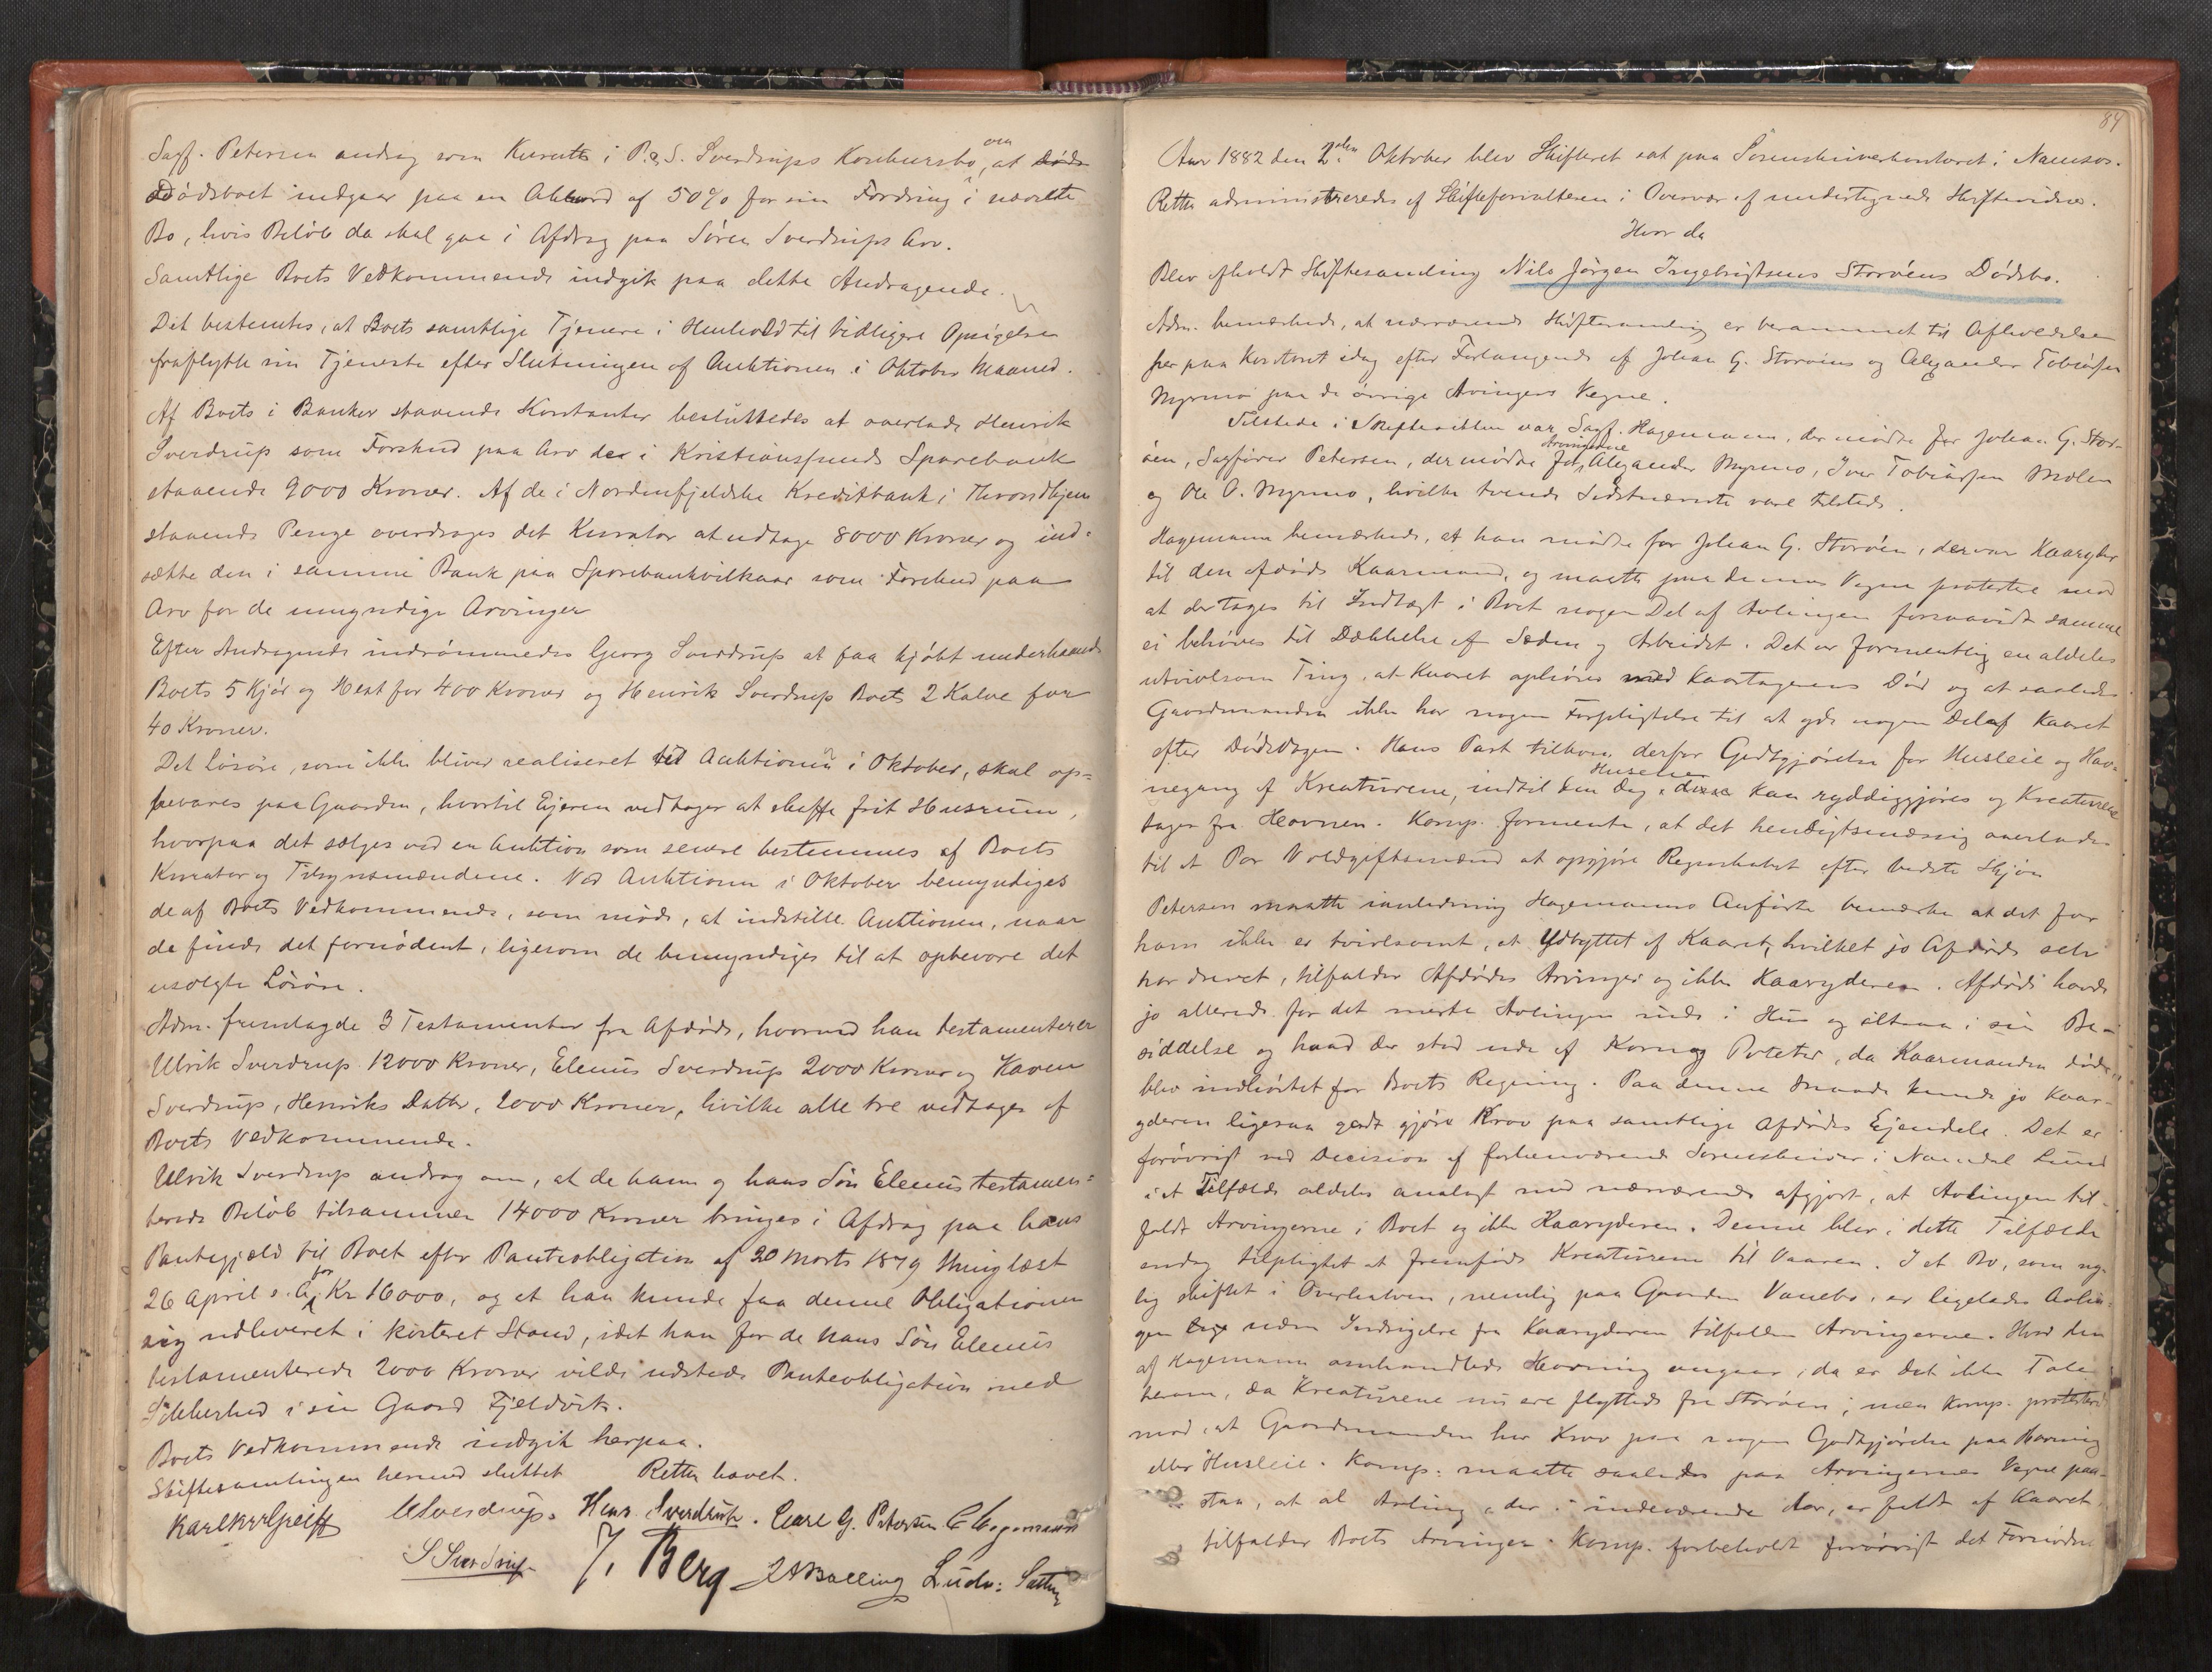 Sagf. Petersen androg som Kurator i P. & S. Sverdrups Konkursbo, om at
Dødsboet indgaar paa en Akkord af 50% for sin Fordring i nævnte
Bo, hvis Beløb da skal gaa i Afdrag paa Søren Sverdrups Arv.
Samtlige Boets Vedkommende indgik paa dette Andragende.
Det bestemtes, at Boets samtlige Tjenere i Henhold til tidligere Opsigelse
fraflytte sin Tjeneste efter Slutningen af Auktionen i Oktober Maaned.
Af Boets i Banker staaende Kontanter besluttedes at overlade Henrik
Sverdrup som Forskud paa Arv de i Kristiansunds Sparebank
staaende 9000 Kroner. Af de i Nordenfjeldske Kreditbank i Throndhjem
staaende Penge overdroges det Kurator at udtage 8000 Kroner og ind-
sætte den i samme Bank paa Sparebankvilkaar som Forskud paa
Arv for de umyndige Arvinger
Efter Andragende indrømmedes Georg Sverdrup at faa kjøbt underhaanden
Boets 5 Kjør og Hest for 400 Kroner og Henrik Sverdrup Boets 2 Kalve for
40 Kroner.
Det Løsøre, som ikke bliver realiseret ved Auktionen i Oktober, skal op-
bevares paa Gaarden, hvortil Ejeren vedtager at skaffe frit Husrum,
hvorpaa det sælges ved en Auktion som senere bestemmes af Boets
Kurator og Tilsynsmændene. Ved Auktionen i Oktober bemyndiges
de af Boets Vedkommende, som møde, at indstille Auktionen, naar
de finde det fornødent, ligesom de bemyndiges til at opbevare det
usolgte Løsøre.
Adm. fremlagde 3 Testamenter fra Afdøde, hvorved han testamenterer
Ulrik Sverdrup 12000 Kroner, Elenius Sverdrup 2000 Kroner og Karen
Sverdrup, Henriks Datter, 2000 Kroner, hvilke alle tre vedtages af
Boets Vedkommende.
Ulrik Sverdrup androg om, at de ham og hans Søn Elenius testamen-
terede Beløb tilsammen 14000 Kroner bringes i Afdrag paa hans
Pantegjæld til Boet efter Panteobligation af 20 Marts 1879 thinglæst
26 April s. A. for Kr 16000, og at han kunde faa denne Obligationen
sig udleveret i kvitteret Stand, idet han for de hans Søn Elenius
testamenterede 2000 Kroner vilde udstede Panteobligation med
Sikkerhed i sin Gaard Fjeldvik.
Boets Vedkommende indgik herpaa.
Skiftesamlingen hermed sluttet Retten hævet.
U Sverdrup. Henr. Sverdrup. Carl G. Petersen C Hagemann
S Sverdrup J. Berg Ludv:
84
Aar 1882 den 2den Oktober blev Skifteret sat paa Sorenskriverkontoret i Namsos.
Retten administreredes af Skifteforvalteren i Overvær af undertegnede Skiftevidner.
Hvor da
Blev afholdt Skiftesamling Nils Jørgen Ingebrigtsens Storøens Dødsbo.
Adm. bemærkede, at nærværende Skiftesamling er berammet til Afholdelse
her paa Kontoret idag efter Forlangende af Johan G. Storøens og Alexander Tobiassen
Myrmo paa de øvrige Arvingers Vegne.
Tilstede i Skifteretten var Sagf. Hagemann, der mødte for Johan G. Stor-
øen, Sagfører Petersen, der mødte for Arvingerne Alexander Myrmo, Iver Tobiassen Molen
og Ole O. Myrmo, hvilke tvende Sidstnævnte vare tilstede.
Hagemann bemærkede, at han mødte for Johan G. Storøen, der var Kaaryder
til den afdøde Kaarmand, og maatte paa dennes Vegne protestere mod
at der tages til Indtægt i Boet nogen Del af Avlingen forsaavidt samme
ei behøves til Dækkelse af Sæden og Arbeidet. Det er formentlig en aldeles
utvivlsom Ting, at Kaaret ophører med Kaartagerens Død og at saaledes
Gaardmanden ikke har nogen Forpligtelse til at yde nogen Del af Kaaret
efter Dødsdagen. Hans Part tilkom derfor Godtgjørelse for Husleie og Hav-
negang af Kreaturene, indtil den Dag Husene kan ryddiggjøres og Kreaturene
tages fra Havnen. Komp. formente, at det hensigtsmæssig overlades
til et Par Voldgiftsmænd at opgjøre Regnskabet efter bedste Skjøn
Petersen maatte ianledning Hagemanns Anførte bemærke at det for
ham ikke er tvivlsomt, at Udbyttet af Kaaret, hvilket jo Afdøde selv
har drevet, tilfalder Afdødes Arvinger og ikke Kaaryderen. Afdøde havde
jo allerede for det meste Avlingen inde i Hus og altsaa i sin Be-
siddelse og hvad der stod ude af Korn og Poteter, da Kaarmanden døde,
blev indhøstet for Boets Regning. Paa denne Maade kunde jo Kaar-
yderen ligesaa godt gjøre Krav paa samtlige Afdødes Ejendele. Det er
forøvrigt ved Decision af forhenværende Sorenskriver i Namdal Lund
i et Tilfælde aldeles analogt med nærværende afgjort, at Avlingen til-
faldt Arvingerne i Boet og ikke Kaaryderen. Denne blev i dette Tilfælde
endog tilpligtet at fremføde Kreaturene til Vaaren. I et Bo, som ny-
lig skiftet i Overhalven, nemlig paa Gaarden Vanebo, er ligeledes Avlin-
gen uden Indsigelse fra Kaaryderen tilfalden Arvingerne. Hvad den
af Hagemann omhandlede Havning angaar, da er det ikke Tale
herom, da Kreaturene nu ere flyttede fra Storøen; men Komp. protesterede
mod, at Gaardmanden har Krav paa nogen Godtgjørelse paa Havning
eller Husleie. Komp. maatte saaledes paa Arvingernes Vegne paa-
staa, at al Avling, der i indeværende Aar, er faldt af Kaaret,
tilfalder Boets Arvinger. Komp. forbeholdt forøvrigt det Fornødne